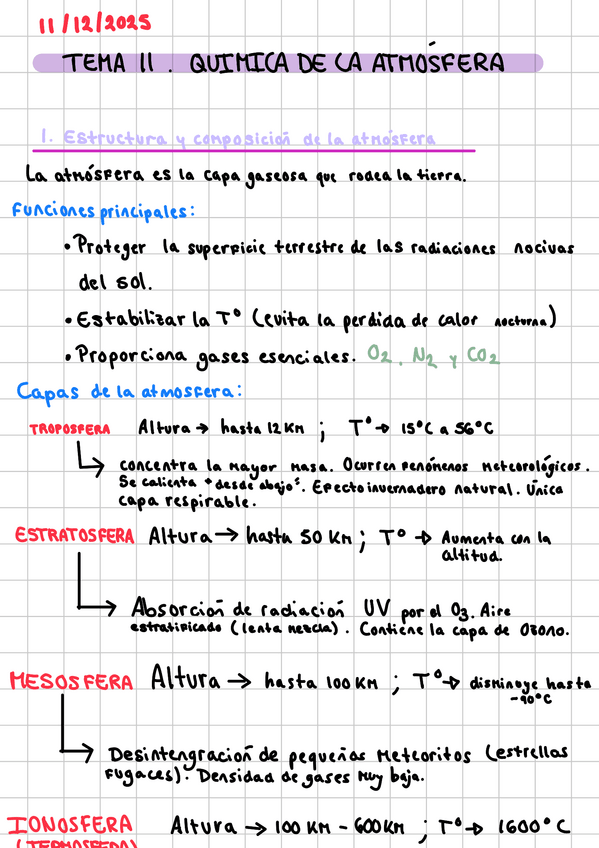 11/12/2025
TEMA 11. QUIMICA DE LA ATMÓSFERA
1. Estructura y composición de la atmósfera
La atmósfera es la capa gaseosa que rodea la tierra.
Funciones principales:
• Proteger la superficie terrestre de las radiaciones nocivas
del sol.
• Estabilizar la Tº (evita la perdida de calor nocturna)
• Proporciona gases esenciales. O2, N2 y CO2
Capas de la atmosfera:
TROPOSFERA Altura → hasta 12 Km ; Tº → 15ºC a 56ºC
concentra la mayor masa. Ocurren fenómenos meteorológicos.
Se calienta "desde abajo". Efecto invernadero natural. Única
capa respirable.
ESTRATOSFERA Altura → hasta 50 Km ; Tº → Aumenta con la
altitud.
Absorción de radiación UV por el O3. Aire
estratificado (lenta mezcla). Contiene la capa de Ozono.
MESOSFERA Altura → hasta 100 Km ; Tº → disminuye hasta
-90ºC
Desintengración de pequeños meteoritos (estrellas
fugaces). Densidad de gases muy baja.
IONOSFERA Altura → 100 Km - 600 Km ; Tº → 1600ºC
(TERMOSFERA)